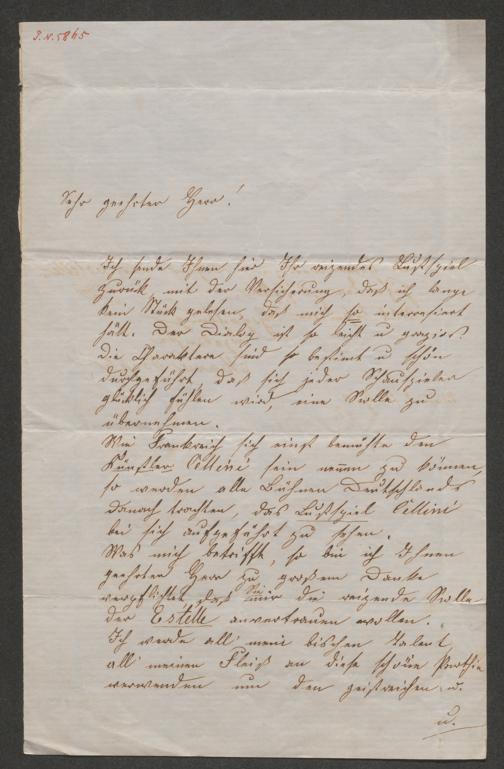 J. N. 5865
Sehr geehrter Herr!
Ich sende Ihnen hier Ihr reizendes Lustspiel
zurück, mit der Versicherung, daß ich lange
kein Stück gelesen, daß mich so interressirt
hätt. Der Dialog ist so leicht u graziös.
die Charaktere sind so bestimt u schön
durchgeführt daß sich jeder Schauspieler
glücklich fühlen wird, eine Rolle zu
übernehmen.
Wie Frankreich sich einst bemühte den
Künstler Cellini sein nennen zu können,
so werden alle Bühnen Deutschlands
danach trachten, das Lustspiel Cellini
bei sich aufgeführt zu sehen.
Was mich betrifft, so bin ich Ihnen
geehrter Herr zu großem Danke
verpflichtet daß Sie mir die reizende Rolle
der Estelle anvertrauen wollen.
Ich werde all' mein bischen Talent
all' meinen Fleiß an diese schöne Parthie
verwenden um den geistreichen u.
u.